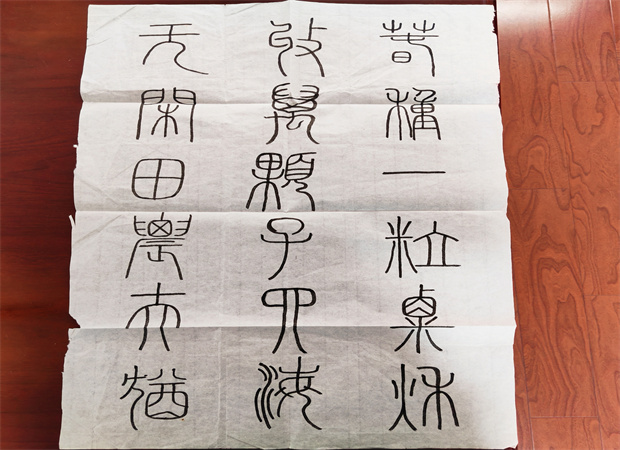 春種一粒粟秋
收萬顆子四海
无閑田農夫猶